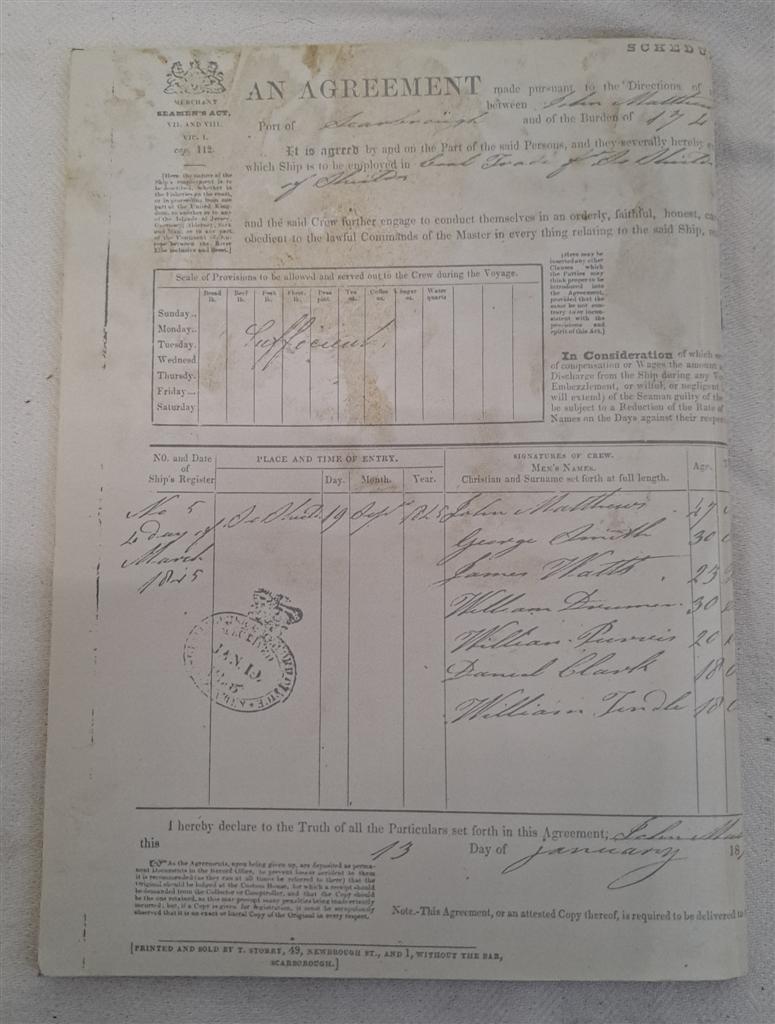 SCHEDU
AN AGREEMENT made pursuant to the Directions of
between John Matthew
MERCHANT
SEAMEN'S ACT,
VII. AND VIII.
VIC. 1.
cap. 112.
Port of Scarbrough and of the Burden of 174
It is agreed by and on the Part of the said Persons, and they severally hereby
which Ship is to be employed in Coal Trade of So Shields
of Shields
[Here the nature of the
Ship's employment is to
be described, whether in
the Fisheries on the coast,
or in proceeding from one
part of the United King-
dom, to another or to any
of the Islands of Jersey,
Guernsey, Alderney, Sark
and Man, or to any part
of the Continent of Eu-
rope between the River
Elbe inclusive and Brest.]
and the said Crew further engage to conduct themselves in an orderly, faithful, honest,
obedient to the lawful Commands of the Master in every thing relating to the said Ship,
Scale of Provisions to be allowed and served out to the Crew during the Voyage.
Bread lb. Beef lb. Pork lb. Flour lb. Peas pint. Tea oz. Coffee oz. Sugar oz. Water quarts
Sunday...
Monday..
Tuesday.
Wednesd
Thursday.
Friday....
Saturday
Sufficient
[Here may be
inserted any other
Clauses which
the Parties may
think proper to be
introduced into
the Agreement,
provided that the
same be not con-
trary to or incon-
sistent with the
provisions and
spirit of this Act.]
In Consideration of which
of compensation or Wages the amount
Discharge from the Ship during any
Embezzlement, or wilful or negligent
will extend) of the Seaman guilty of the
be subject to a Reduction of the Rate of
Names on the Days against their
NO. and Date
of
Ship's Register
PLACE AND TIME OF ENTRY.
Day. Month. Year.
SIGNATURES OF CREW.
MEN'S NAMES.
Christian and Surname set forth at full length.
Age.
No 5
4 day of
March
1845
So Shields 19 Sepr 1845 John Matthews 47
George Smith 30
James Watts 23
William 30
William Purvis 20
Daniel Clark 18
William Tindle 18
RECEIVED
JAN. 19.
I hereby declare to the Truth of all the Particulars set forth in this Agreement; John
this 13 Day of January 18
As the Agreements, upon being given up, are deposited as perma-
nent Documents in the Record Office, to prevent
it is recommended (as they can at all times be referred to there) that the
Original should be lodged at the Custom House, for which a receipt should
be demanded from the Collector or Comptroller, and that the Copy should
be the one retained, as this may prevent many penalties being inadvertently
incurred; but, if a Copy is given for Registration, it must be scrupulously
observed that it is an exact or literal Copy of the Original in every respect.
Note.-This Agreement, or an attested Copy thereof, is required to be delivered to
[PRINTED AND SOLD BY T. STORRY, 49, NEWBROUGH ST., AND 1, WITHOUT THE BAR,
SCARBOROUGH.]